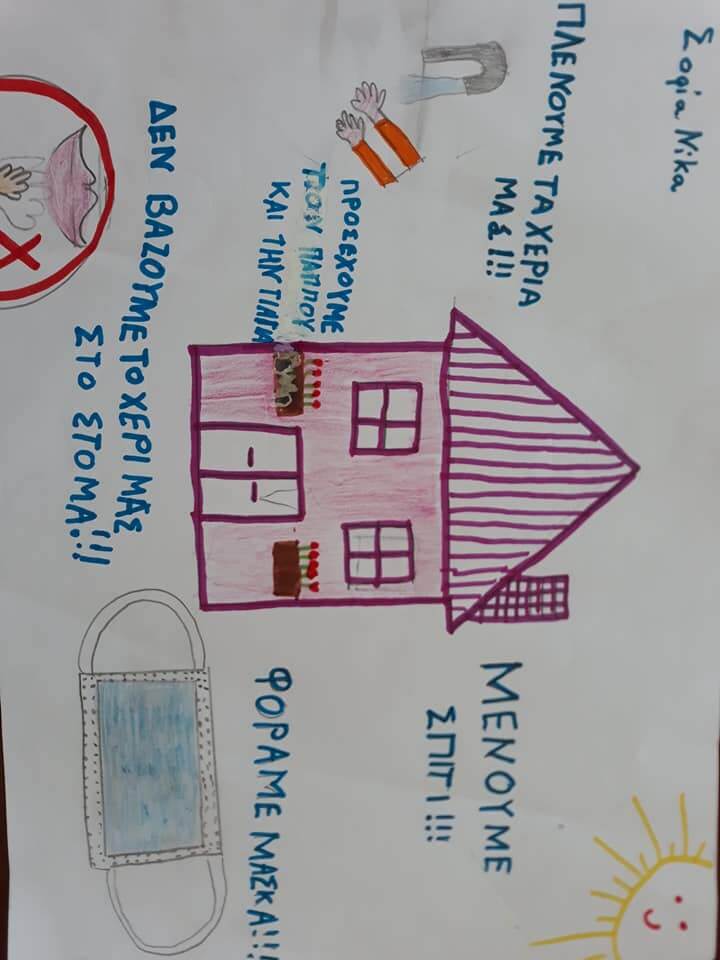 Σοφία Νίκα
ΠΛΕΝΟΥΜΕ ΤΑ ΧΕΡΙΑ
ΜΑΣ!!!
ΜΕΝΟΥΜΕ
ΣΠΙΤΙ!!!
ΠΡΟΣΕΧΟΥΜΕ
ΤΟΝ ΠΑΠΠΟΥ
ΚΑΙ ΤΗΝ
ΦΟΡΑΜΕ ΜΑΣΚΑ!!!
ΔΕΝ ΒΑΖΟΥΜΕ ΤΟ ΧΕΡΙ ΜΑΣ
ΣΤΟ ΣΤΟΜΑ!!!